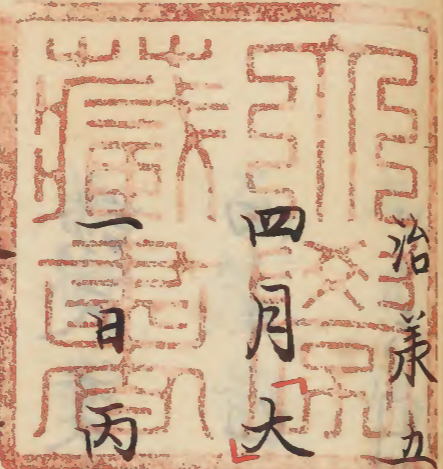 治承五
四月大
一日丙